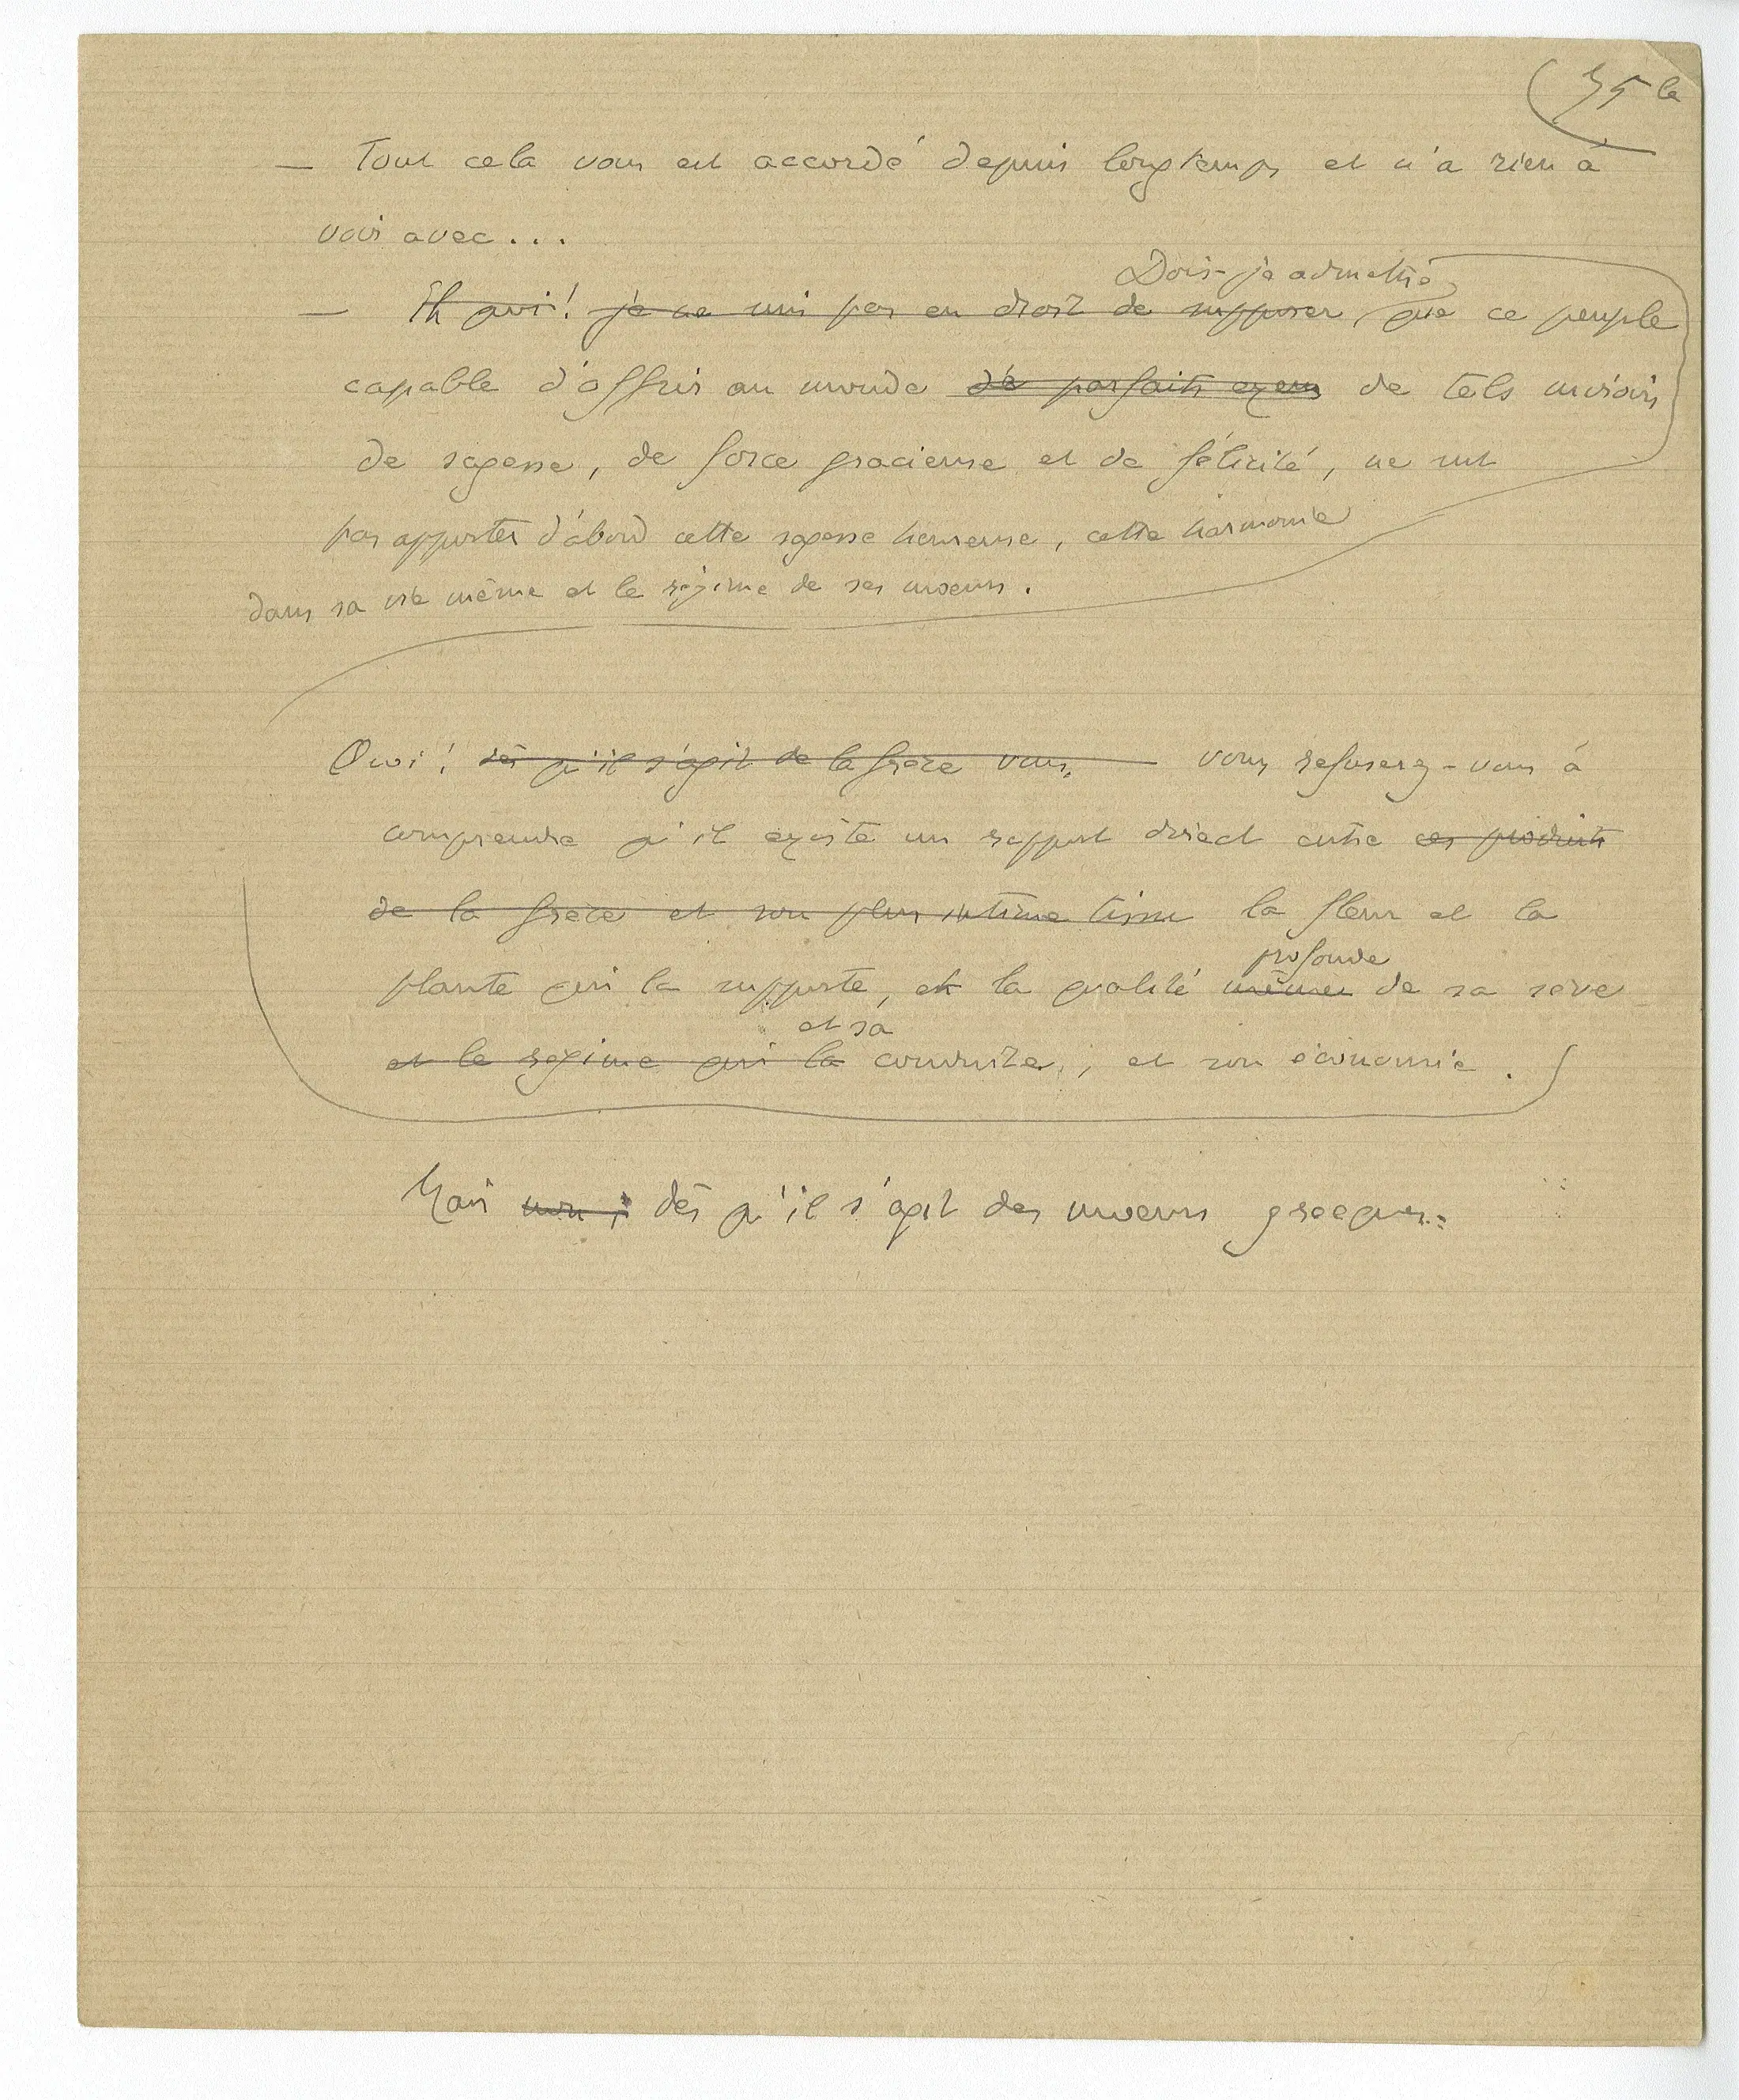 35 la
— Tout cela vous est accordé depuis longtemps et n'a rien à
voir avec...
Dois-je admettre
— Eh quoi! je ne suis pas en droit de supposer, que ce peuple
capable d'offrir au monde de parfaits exem de tels miroirs
de sagesse, de force gracieuse et de félicité, ne sut
pas apporter d'abord cette sagesse heureuse, cette harmonie
dans sa vie même et le régime de ses mœurs.
Quoi! dès qu'il s'agit de la Grèce vous, vous refuserez-vous à
comprendre qu'il existe un rapport direct entre ces produits
de la Grèce et son plus intime tissu la fleur et la
plante qui la supporte, et la qualité
profonde
même de sa sève
et sa
et le régime qui la conduite, et son économie.
Mais non; dès qu'il s'agit des mœurs grecques..